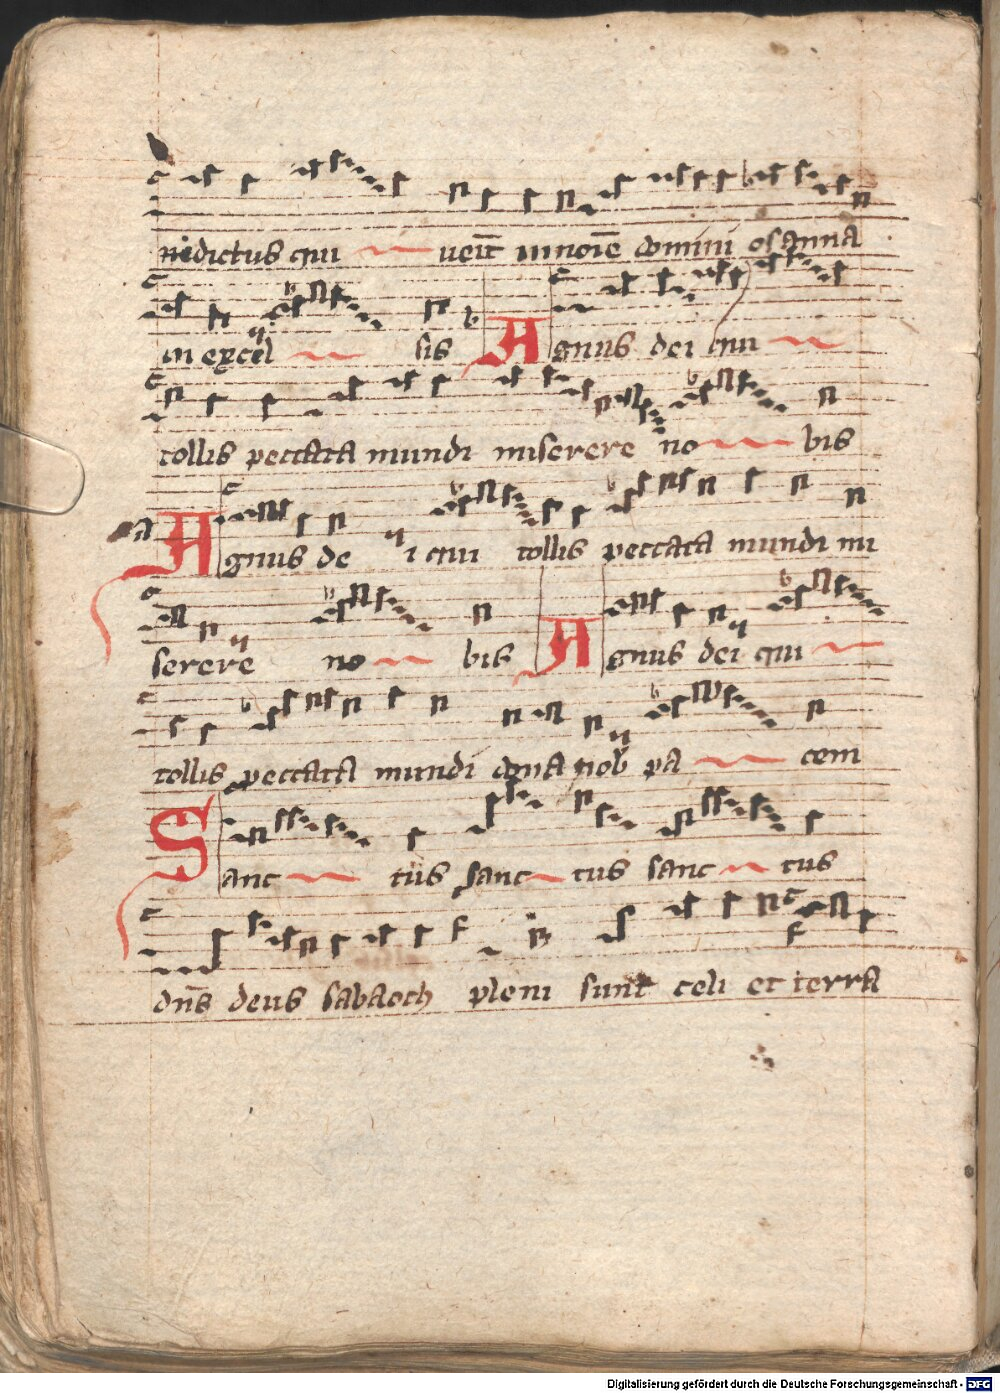 nedictus qui venit in noīe domini osanna
in excel sis Agnus dei qui
tollis peccata mundi miserere no bis
Agnus de i qui tollis peccata mundi mi
serere no bis Agnus dei qui
tollis peccata mundi dona nob pa cem
Sanc tus sanc tus sanc tus
dn̄s deus sabaoth pleni sunt celi et terra
Digitalisierung gefördert durch die Deutsche Forschungsgemeinschaft - DFG